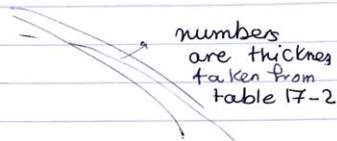 numbers
are thicknes
taken from
table 17-2